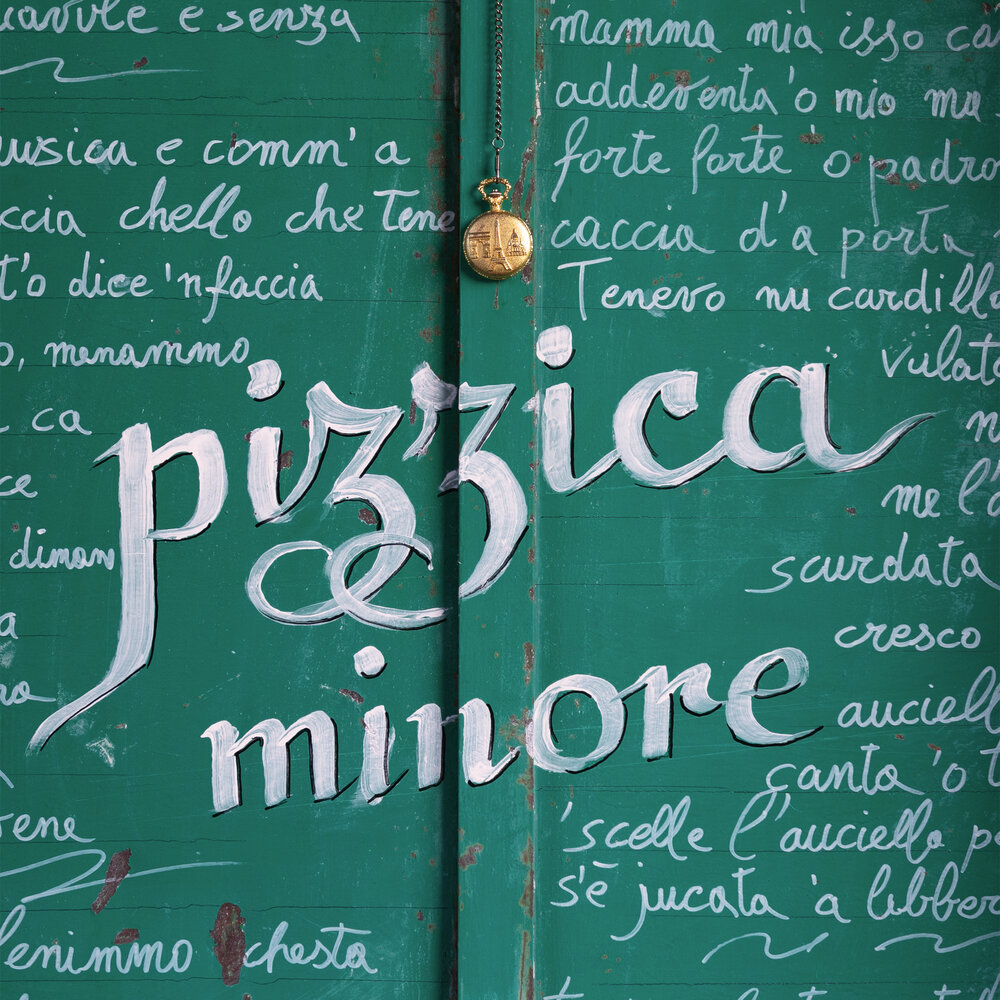 e senza
musica e comm' a
ccia chello che tene
t'o dice 'nfaccia
o, menammo
ca
ce
diman
a
ro
vene
lenimmo chesta
mamma mia isso ca
addeventa 'o mio ma
forte forte 'o padro
caccia d'a porta
Tenevo nu cardillo
vulat
n
me l'a
scurdata
cresco
auciell
canta 'o t
'scelle l'auciello pe
s'è jucata 'a libber
pizzica
minore